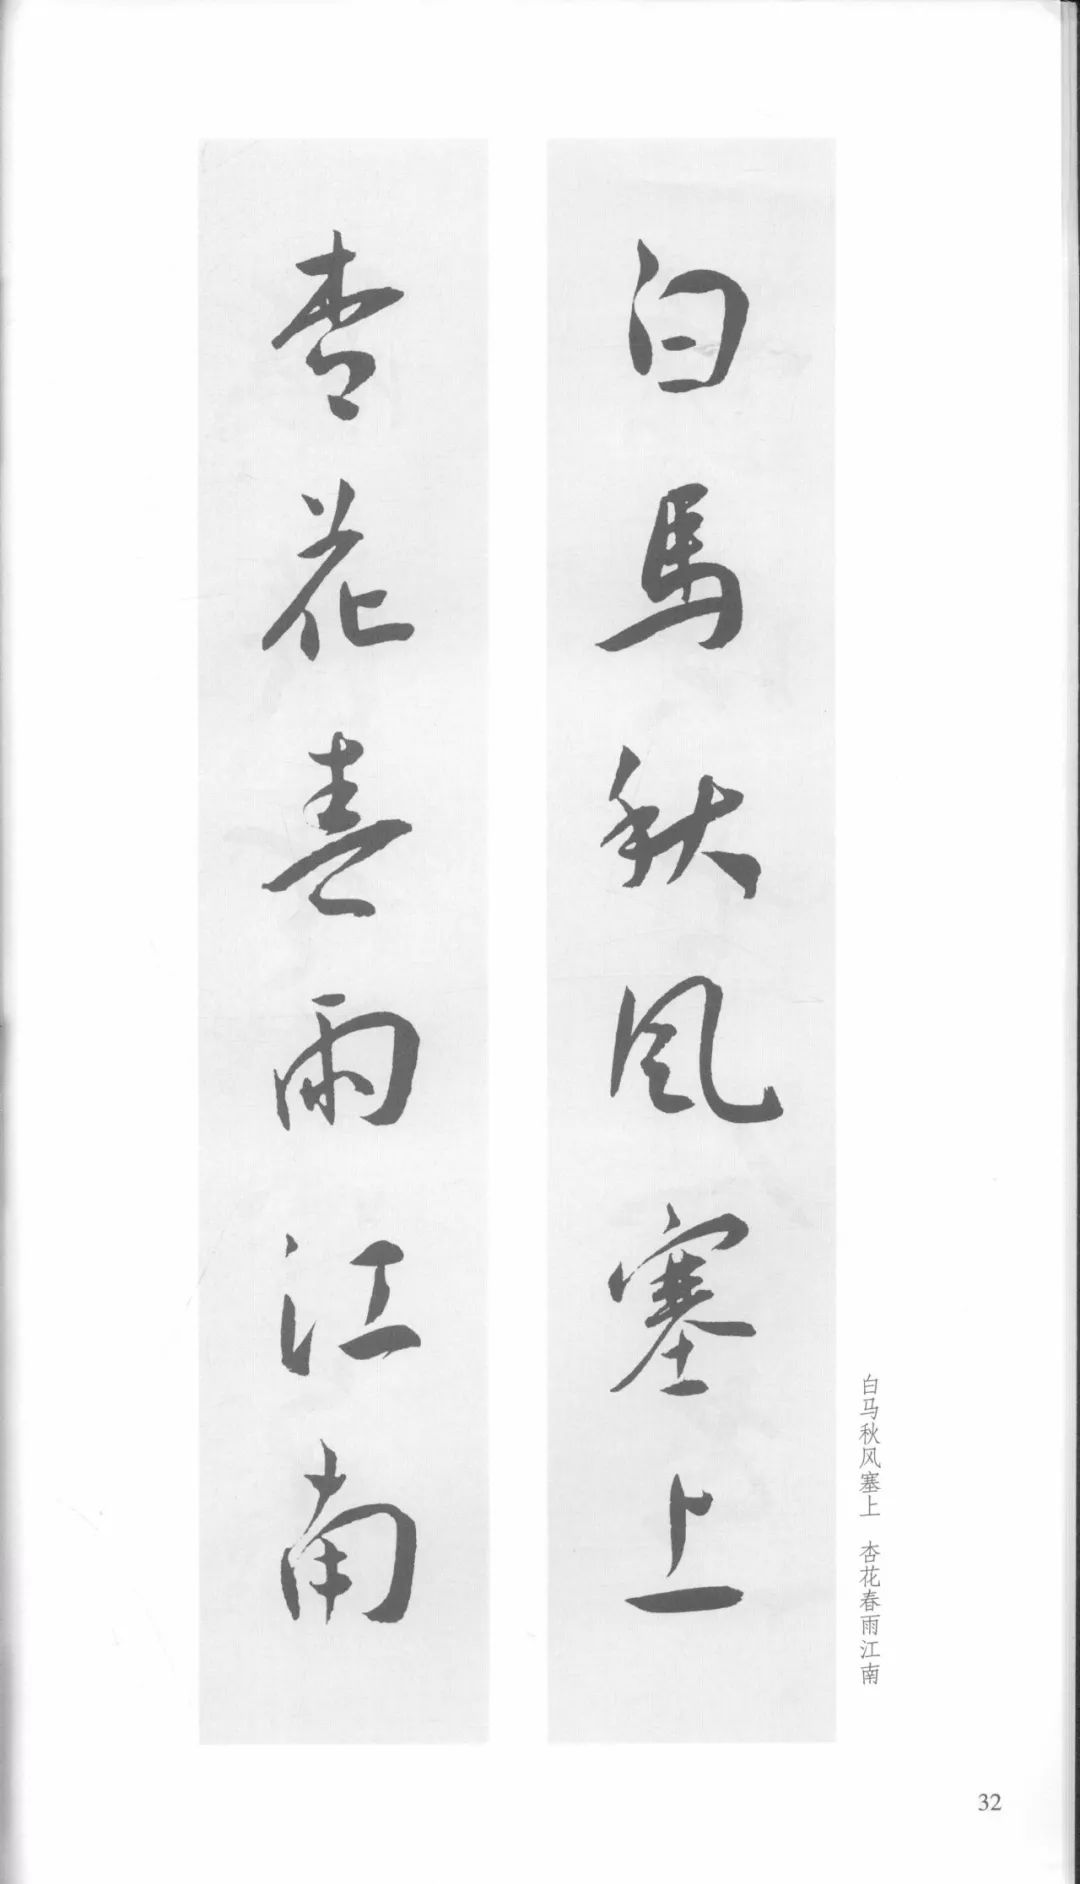 白馬秋风塞上
杏花春雨江南
白马秋风塞上 杏花春雨江南
32